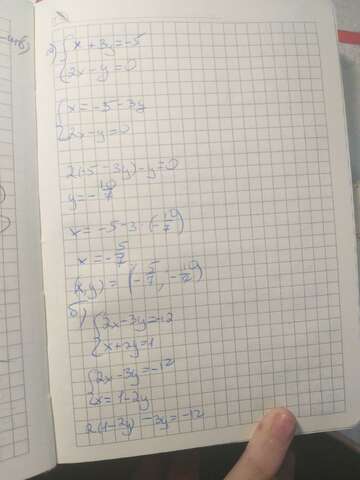 а) { x + 3y = -5
{ 2x - y = 0
{ x = -5 - 3y
{ 2x - y = 0
2(-5 - 3y) - y = 0
y = -10/7
x = -5 - 3 · (-10/7)
x = -5/7
(x, y) = (-5/7, -10/7)
б) { 2x - 3y = -12
{ x + 2y = 1
{ 2x - 3y = -12
{ x = 1 - 2y
2(1 - 2y) - 3y = -12